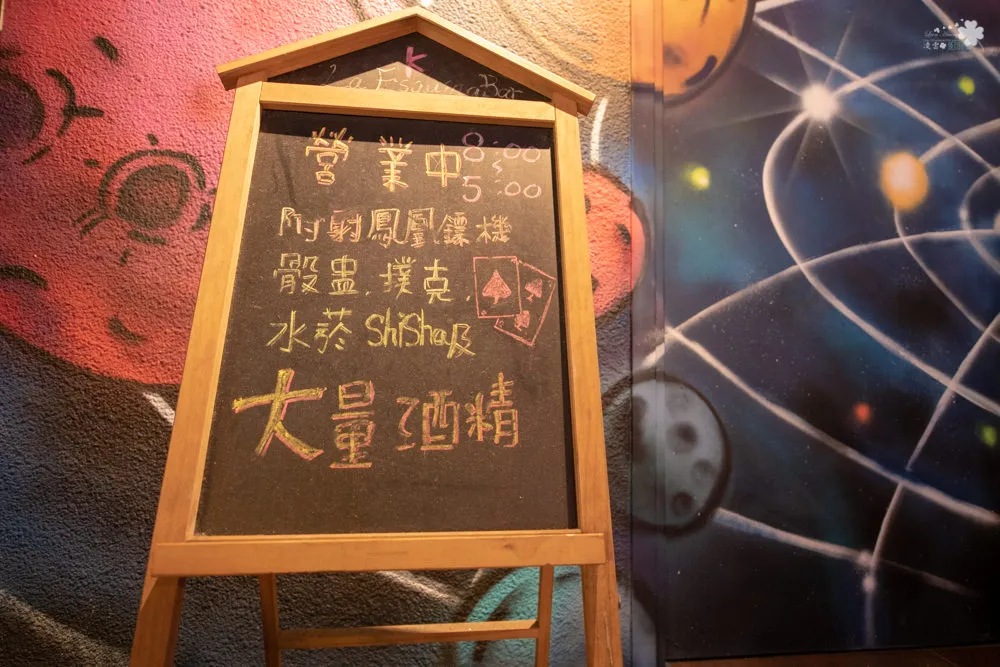 K
La Esquina Bar
營業中 8:00
~
5:00
附射鳳凰鏢機
骰盅.撲克.
水菸 ShiSha及
大量酒精